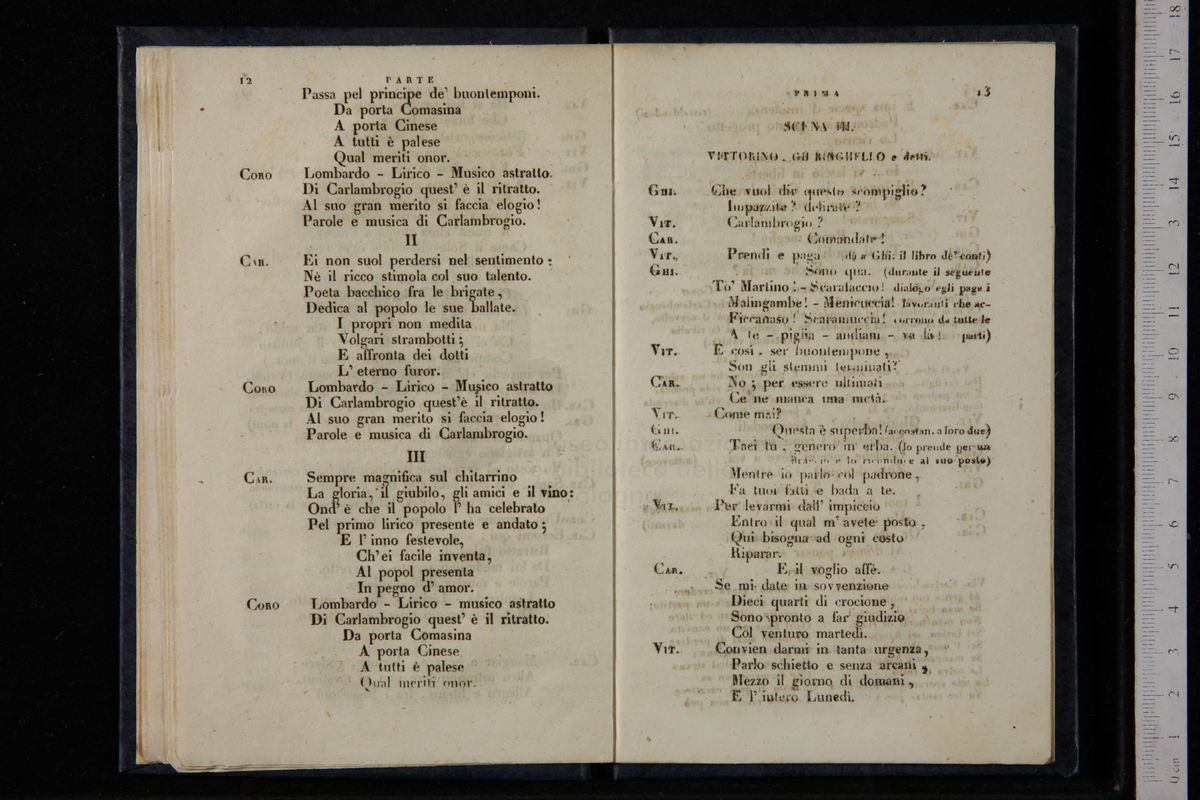 12 PARTE
Passa pel principe de' buontemponi.
Da porta Comasina
A porta Cinese
A tutti è palese
Qual meriti onor.
CORO Lombardo - Lirico - Musico astratto.
Di Carlambrogio quest' è il ritratto.
Al suo gran merito si faccia elogio!
Parole e musica di Carlambrogio.
II
CAR. Ei non suol perdersi nel sentimento:
Nè il ricco stimola col suo talento.
Poeta bacchico fra le brigate,
Dedica al popolo le sue ballate.
I propri non medita
Volgari strambotti;
E affronta dei dotti
L' eterno furor.
CORO Lombardo - Lirico - Musico astratto
Di Carlambrogio quest'è il ritratto.
Al suo gran merito si faccia elogio!
Parole e musica di Carlambrogio.
III
CAR. Sempre magnifica sul chitarrino
La gloria, il giubilo, gli amici e il vino:
Ond' è che il popolo l' ha celebrato
Pel primo lirico presente e andato;
E l' inno festevole,
Ch' ei facile inventa,
Al popol presenta
In pegno d' amor.
CORO Lombardo - Lirico - musico astratto
Di Carlambrogio quest' è il ritratto.
Da porta Comasina
A porta Cinese
A tutti è palese
Qual meriti onor.
PRIMA 13
SCENA III.
VITTORINO, GHIRINGHELLO e detti.
GHI. Che vuol dir questo scompiglio?
Impazzite? delirate?
VIT. Carlambrogio?
CAR. Comandate!
VIT. Prendi e paga (dà a Ghi. il libro de' conti)
GHI. Sono qua. (durante il seguente
To' Martino! - Scaralaccio! dialogo egli paga i
Malingambe! - Menicuccia! lavoranti che ac-
Ficcanaso! Scaramuccia! corrono da tutte le
A te - piglia - andiam - va là! parti)
VIT. E così, ser buontempone,
Son gli stemmi terminati?
CAR. No; per essere ultimati
Ce ne manca una metà.
VIT. Come mai?
GHI. Questa è superba! (accostan. a loro due)
CAR. Taci tu, genero in erba. (lo prende per un
braccio e lo riconduce al suo posto)
Mentre io parlo col padrone,
Fa tuoi fatti e bada a te.
VIT. Per levarmi dall' impiccio
Entro il qual m' avete posto,
Qui bisogna ad ogni costo
Riparar.
CAR. E, il voglio affè.
Se mi date in sovvenzione
Dieci quarti di crocione,
Sono pronto a far giudizio
Col venturo martedì.
VIT. Convien darmi in tanta urgenza,
Parlo schietto e senza arcani,
Mezzo il giorno di domani,
E l' intero Lunedì.